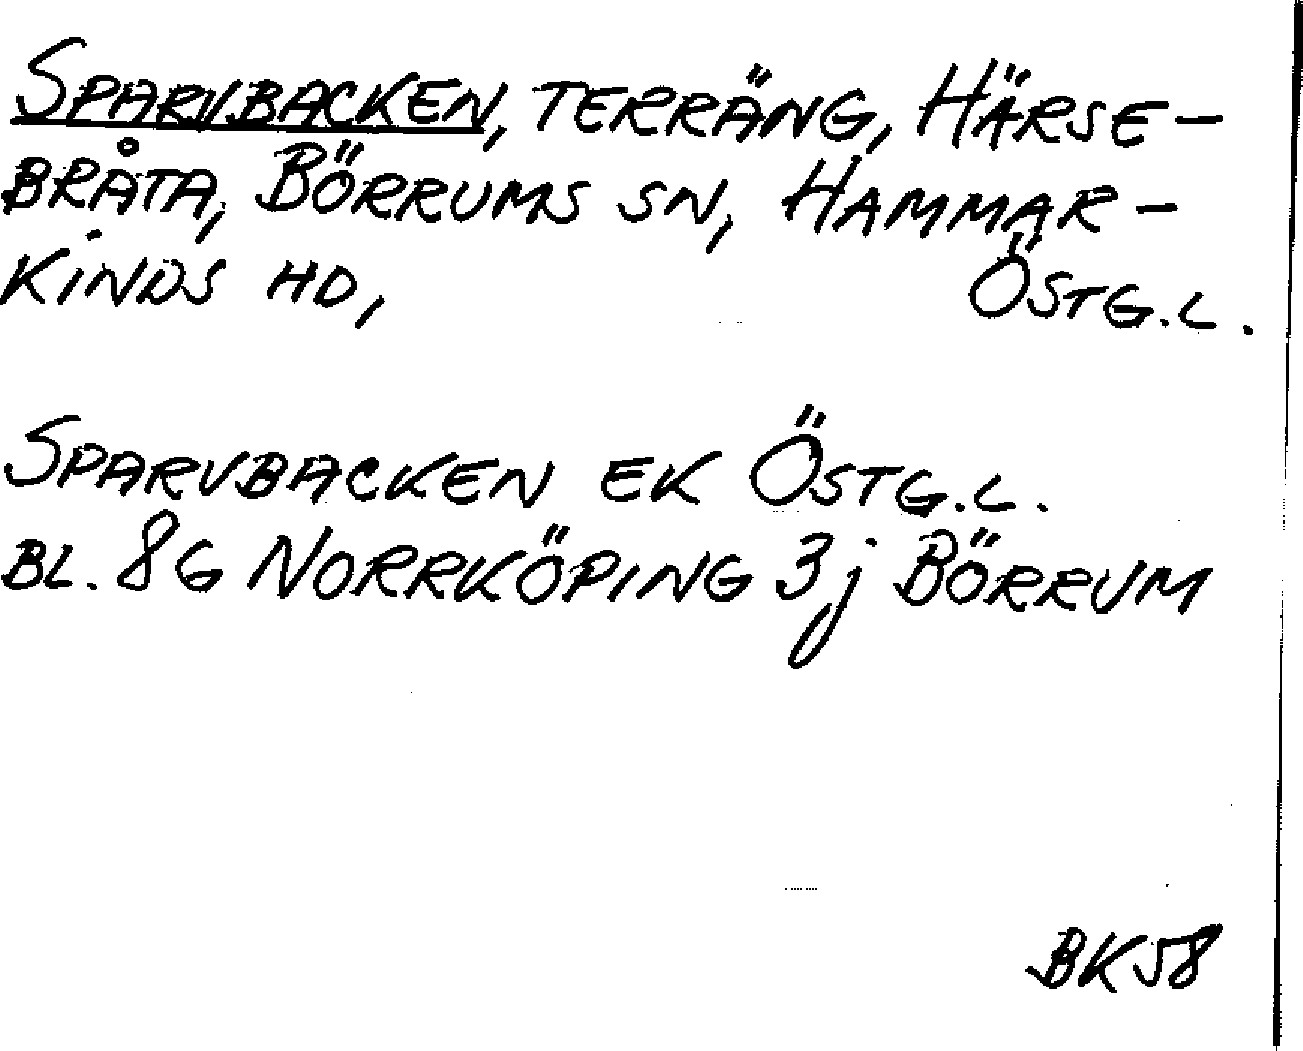 SPARVBACKEN, TERRÄNG, HÄRSE-
BRÅTA, BÖRRUMS SN, HAMMAR-
KINDS HD, ÖSTG.L.
SPARVBACKEN EK ÖSTG.L.
BL. 8G NORRKÖPING 3j BÖRRUM
BK58